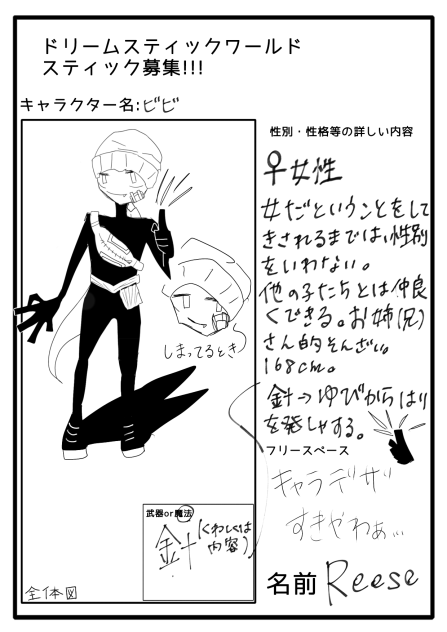 ドリームスティックワールド
スティック募集!!!
キャラクター名:ビビ
性別・性格等の詳しい内容
♀女性
女だということをして
きされるまでは、性別
をいわない。
他の子たちとは仲良
くできる。お姉(兄)
さん的そんざい。
168cm。
針→ゆびからはり
を発しゃする。
しまってるとき
フリースペース
キャラデザ
すきやわぁ...
武器or魔法
針(くわしくは
内容)
全体図
名前 Reese